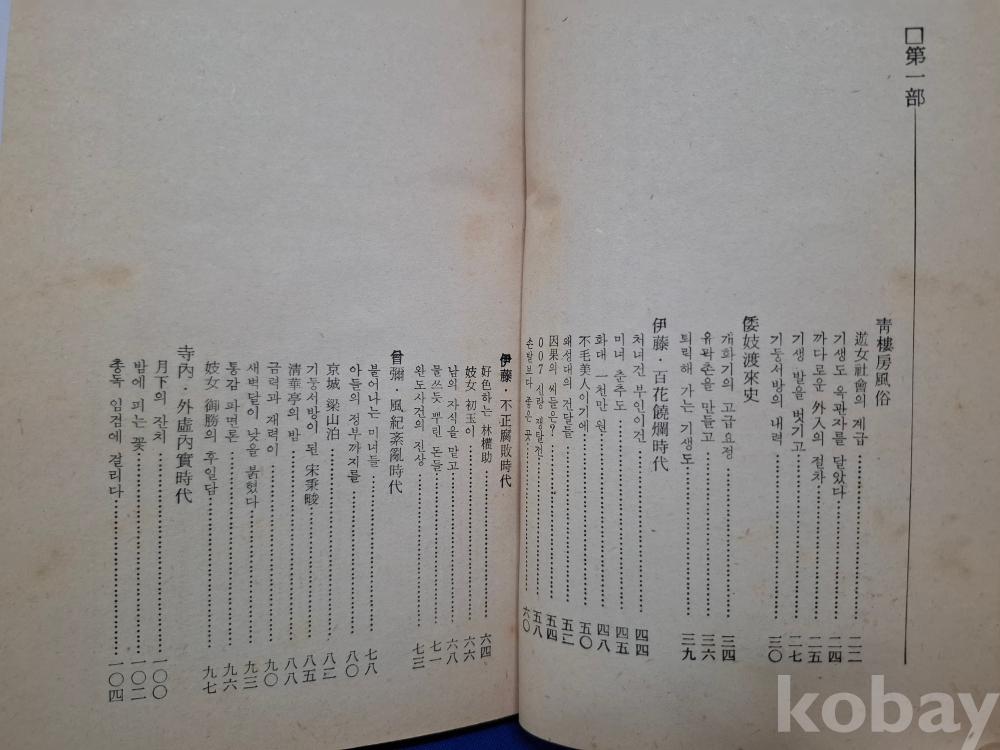 □第一部
靑樓房風俗
遊女社會의 계급……二二
기생도 옥관자를 달았다……二四
까다로운 外入의 절차……二五
기생 발을 벗기고……二七
기둥서방의 내력……三〇
倭妓渡來史
개화기의 고급요정……三四
유곽촌을 만들고……三六
퇴력해 가는 기생도……三九
伊藤·百花饒爛時代
처녀건 부인이건……四四
미녀 춘추도……四五
화대 一천만 원……四八
不毛美人이기에……五〇
왜성대의 건달들……五二
因果의 씨들은?……五四
007 신랑 쟁탈전……五八
손발보다 좋은 곳……六〇
伊藤·不正腐敗時代
好色하는 林權助……六四
妓女 初玉이……六六
남의 자식을 맡고……六八
물쓰듯 뿌린 돈들……七一
완도사건의 진상……七三
曾彌·風紀紊亂時代
불어나는 미녀들……七八
아들의 정부까지를……八〇
京城 梁山泊……八二
기둥서방이 된 宋秉畯……八五
淸華亭의 밤……八八
금력과 재력이……九〇
새벽달이 낮을 붉혔다……九三
통감 파면론……九六
妓女 御勝의 후일담……九七
寺內·外虛內實時代
月下의 잔치……一〇〇
밤에 피는 꽃……一〇二
총독 임검에 걸리다……一〇四
kobay